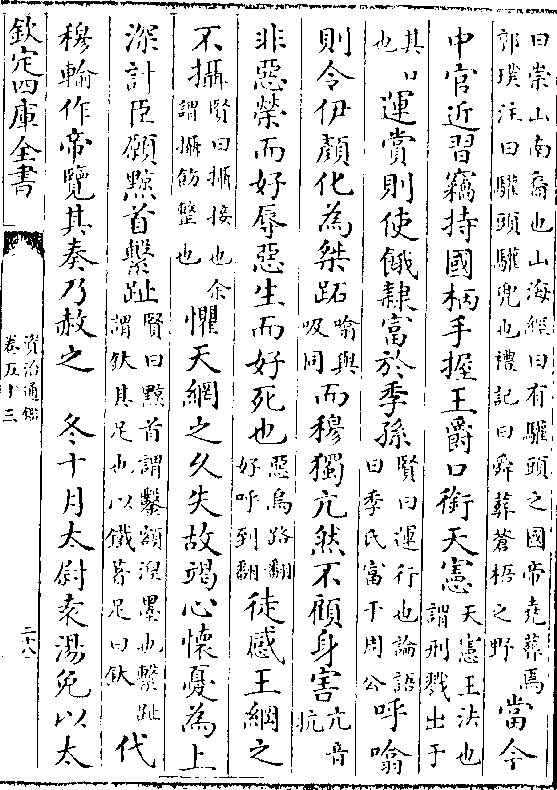 曰崇山南裔也山海經曰有驩頭之國帝堯葬焉
郭璞注曰驩頭驩兜也禮記曰舜葬蒼梧之野
當今
中官近習竊持國柄手握王爵口銜天憲
天憲王法也
謂刑戮出于
其口
也
運賞則使餓隸富於季孫
賢曰運行也論語
曰季氏富于周公
呼噏
則令伊顏化為桀跖
噏與
吸同
而穆獨亢然不顧身害
亢音
抗
非惡榮而好辱惡生而好死也
惡烏路翻
好呼到翻
徒感王綱之
不攝
賢曰攝接也余
謂攝飭整也
懼天網之久失故竭心懷憂為上
深計臣願黥首繫趾
賢曰黥首謂鑿額涅墨也繫趾
謂釱其足也以鐵著足曰釱
代
穆輸作帝覽其奏乃赦之　冬十月太尉袁湯免以太
欽定四庫全書
資治通鑑
卷五十三
二十八